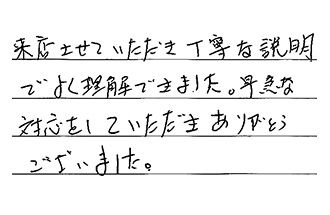 来店させていただき丁寧な説明
でよく理解できました。早急な
対応をしていただきありがとう
ございました。